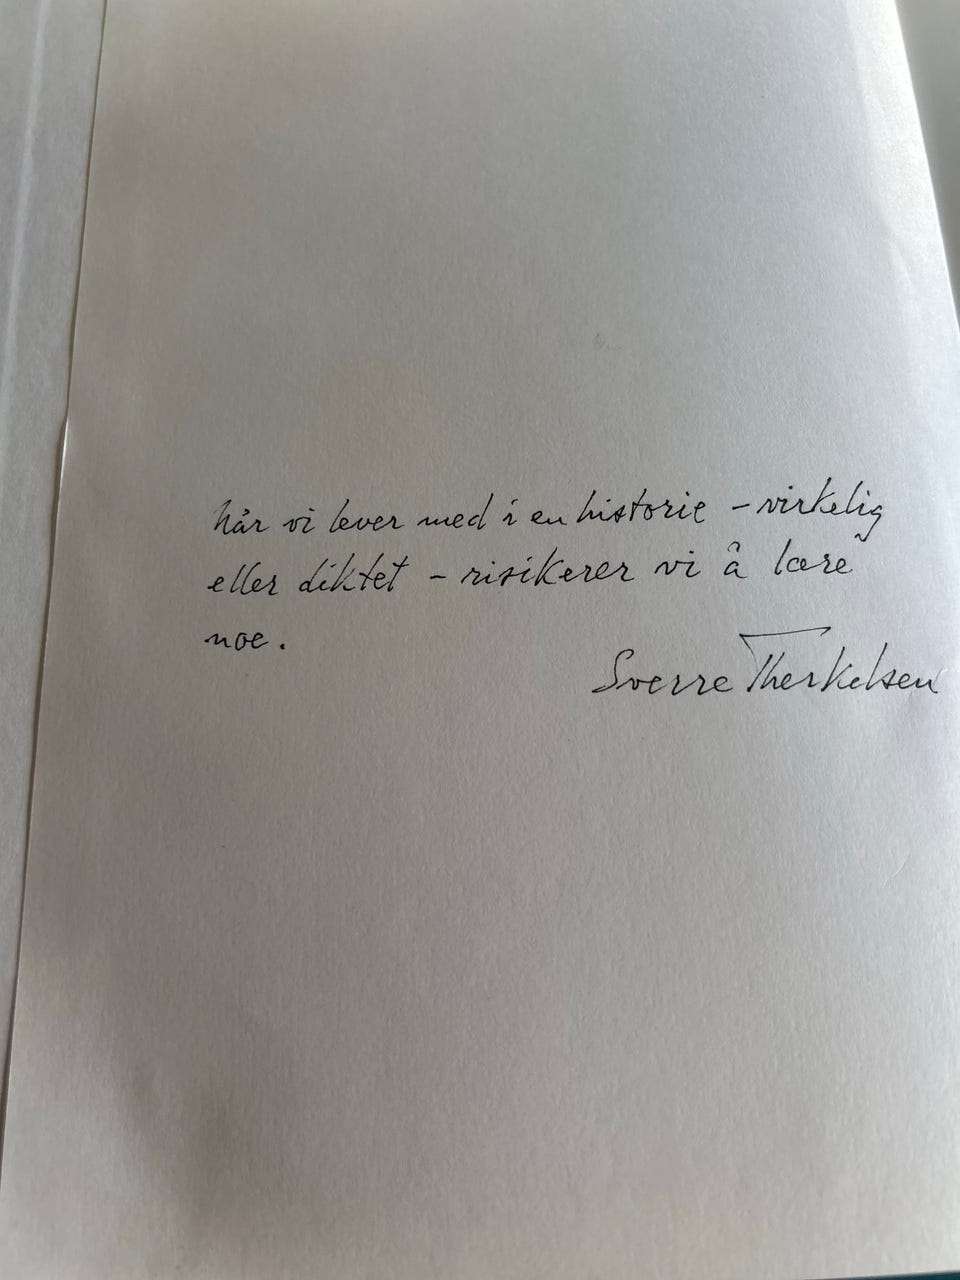 Når vi lever med i en historie - virkelig
eller diktet - risikerer vi å lære
noe.
Sverre Therkelsen